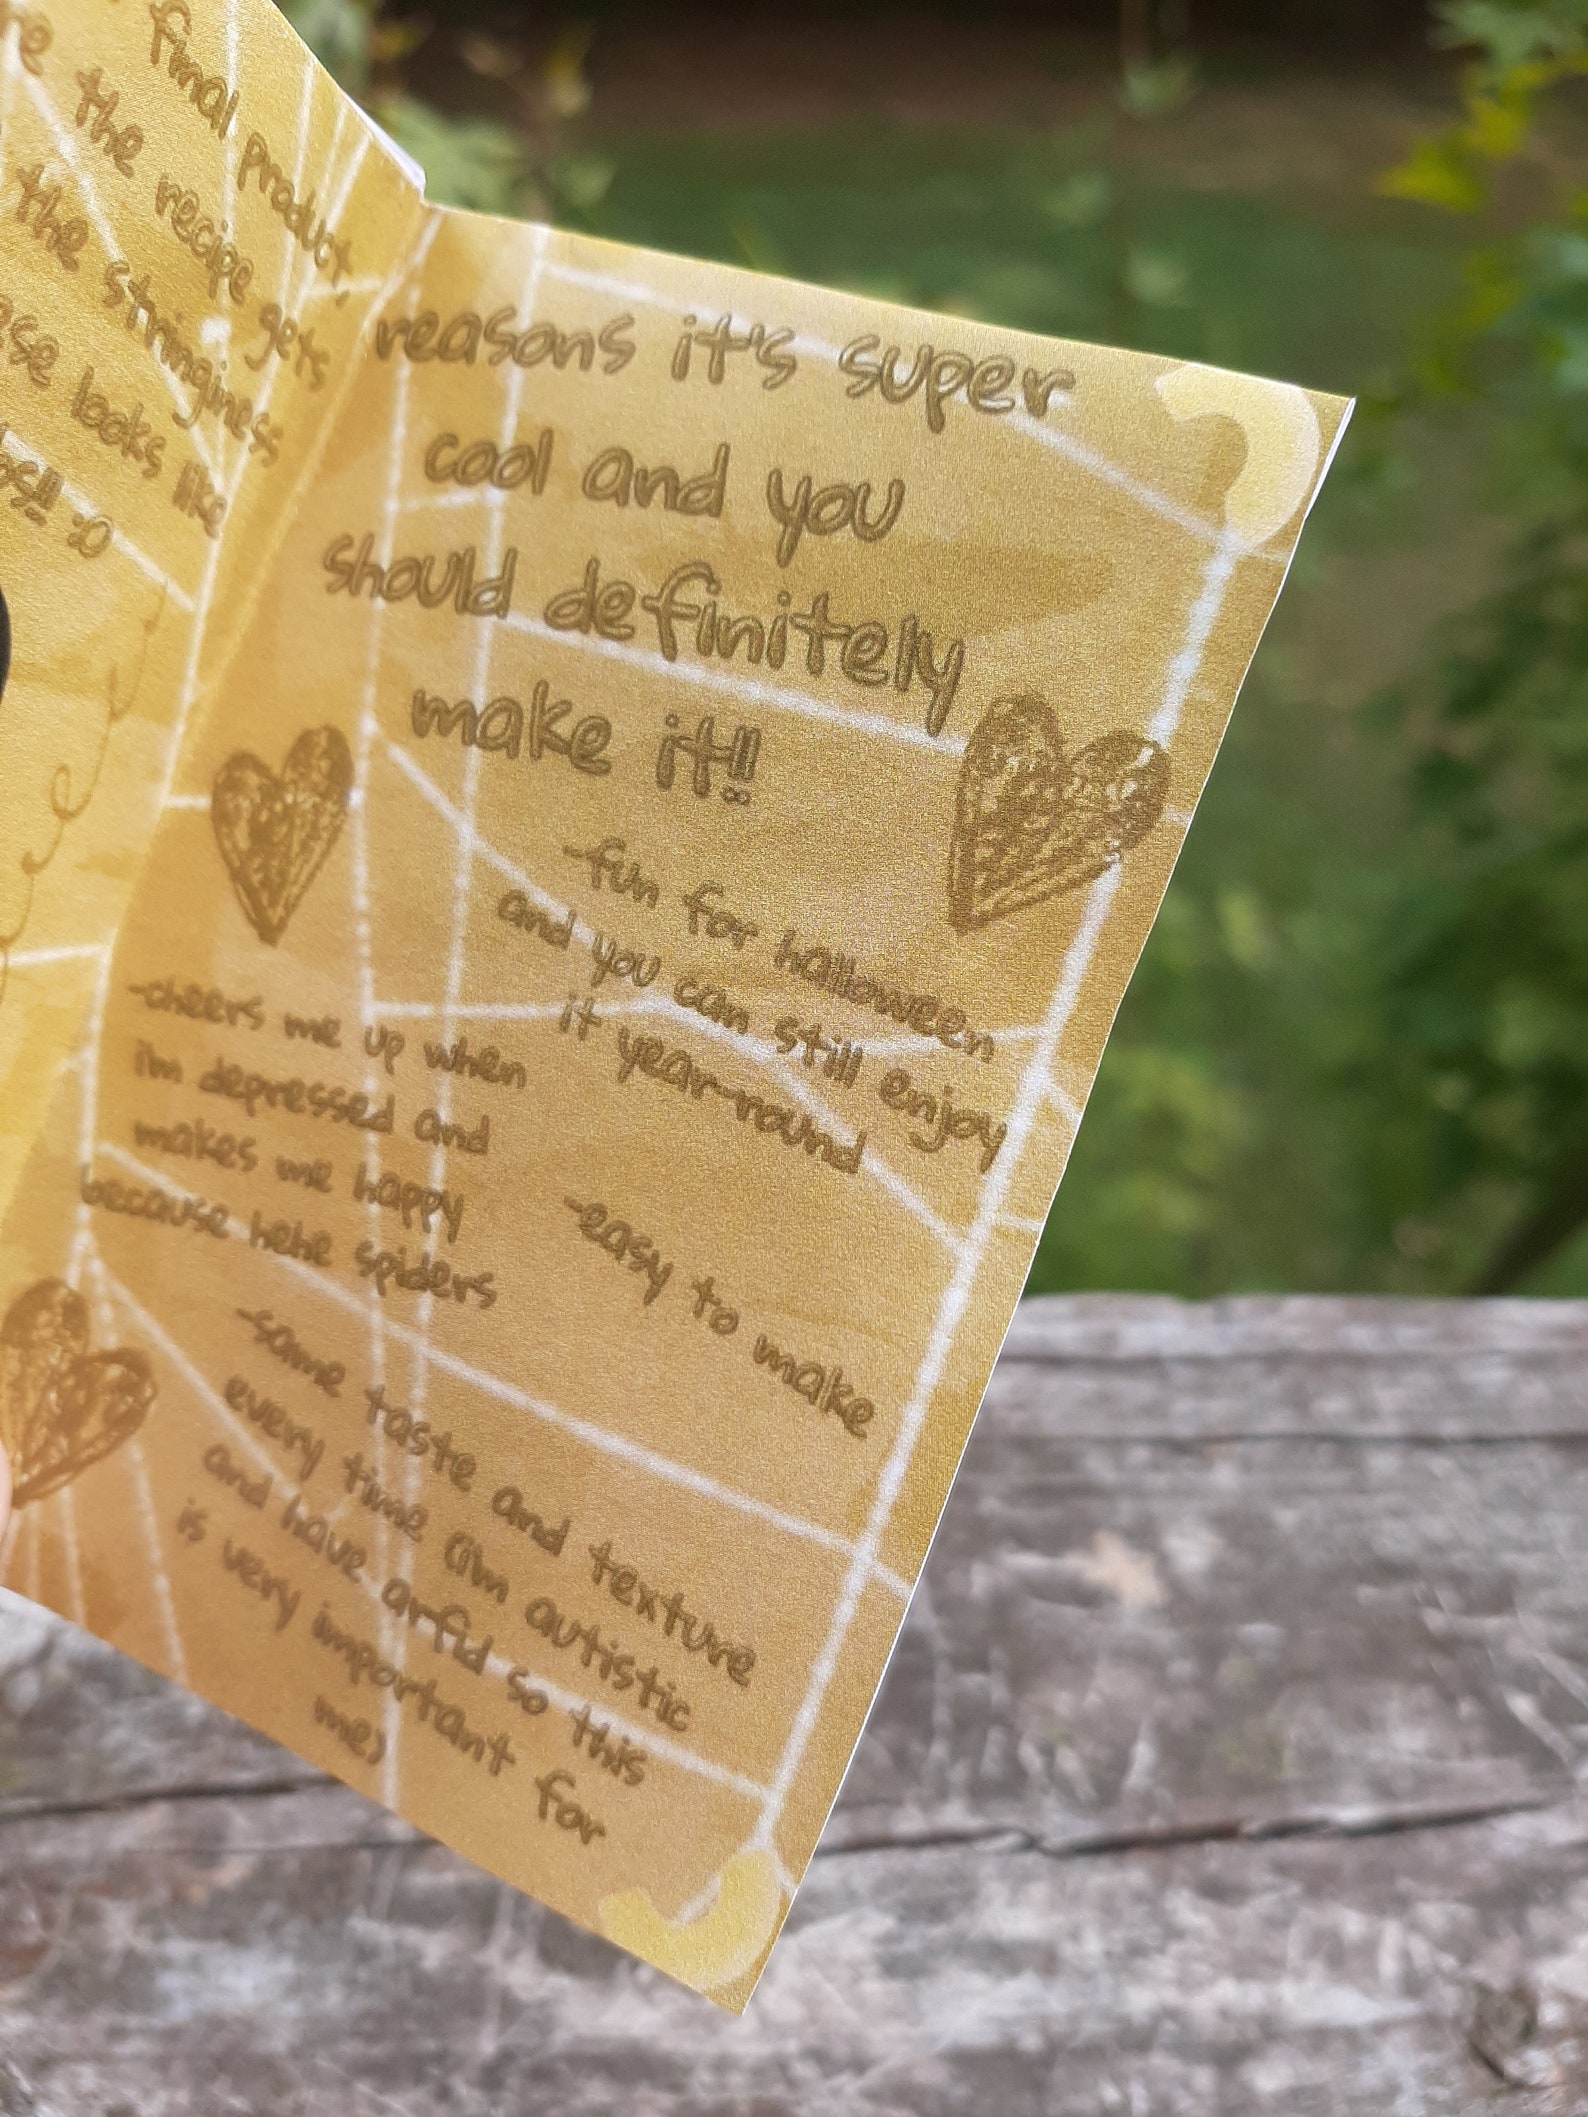 final product,
the recipe gets
the stringiness
looks like
:O
reasons it's super
cool and you
should definitely
make it!!
-fun for halloween
and you can still enjoy
it year-round
-cheers me up when
i'm depressed and
makes me happy
because hehe spiders
-easy to make
-same taste and texture
every time (i'm autistic
and have arfid so this
is very important for
me)